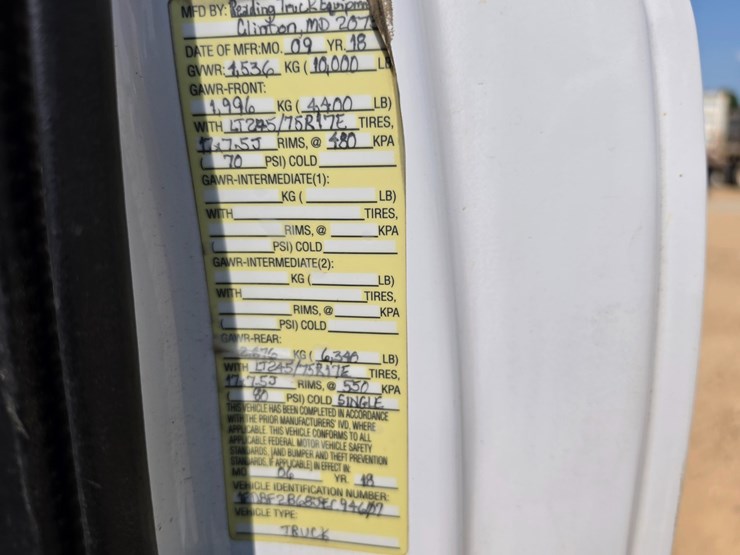 MFD BY: Reading Truck Equipm
Clinton, MD 207
DATE OF MFR:MO. 09 YR. 18
GVWR: 4,536 KG ( 10,000 LB
GAWR-FRONT:
1,996 KG ( 4,400 LB)
WITH LT245/75R17E TIRES,
17x7.5J RIMS, @ 480 KPA
( 70 PSI) COLD
GAWR-INTERMEDIATE(1):
KG ( LB)
WITH TIRES,
RIMS, @ KPA
( PSI) COLD
GAWR-INTERMEDIATE(2):
KG ( LB)
WITH TIRES,
RIMS, @ KPA
( PSI) COLD
GAWR-REAR:
KG ( 6,340 LB)
WITH LT245/75R17E TIRES,
17x7.5J RIMS, @ 550 KPA
( 80 PSI) COLD SINGLE
THIS VEHICLE HAS BEEN COMPLETED IN ACCORDANCE
WITH THE PRIOR MANUFACTURERS' IVD, WHERE
APPLICABLE. THIS VEHICLE CONFORMS TO ALL
APPLICABLE FEDERAL MOTOR VEHICLE SAFETY
STANDARDS, [AND BUMPER AND THEFT PREVENTION
STANDARDS, IF APPLICABLE] IN EFFECT IN:
MO. 06 YR. 18
VEHICLE IDENTIFICATION NUMBER:
VEHICLE TYPE:
TRUCK